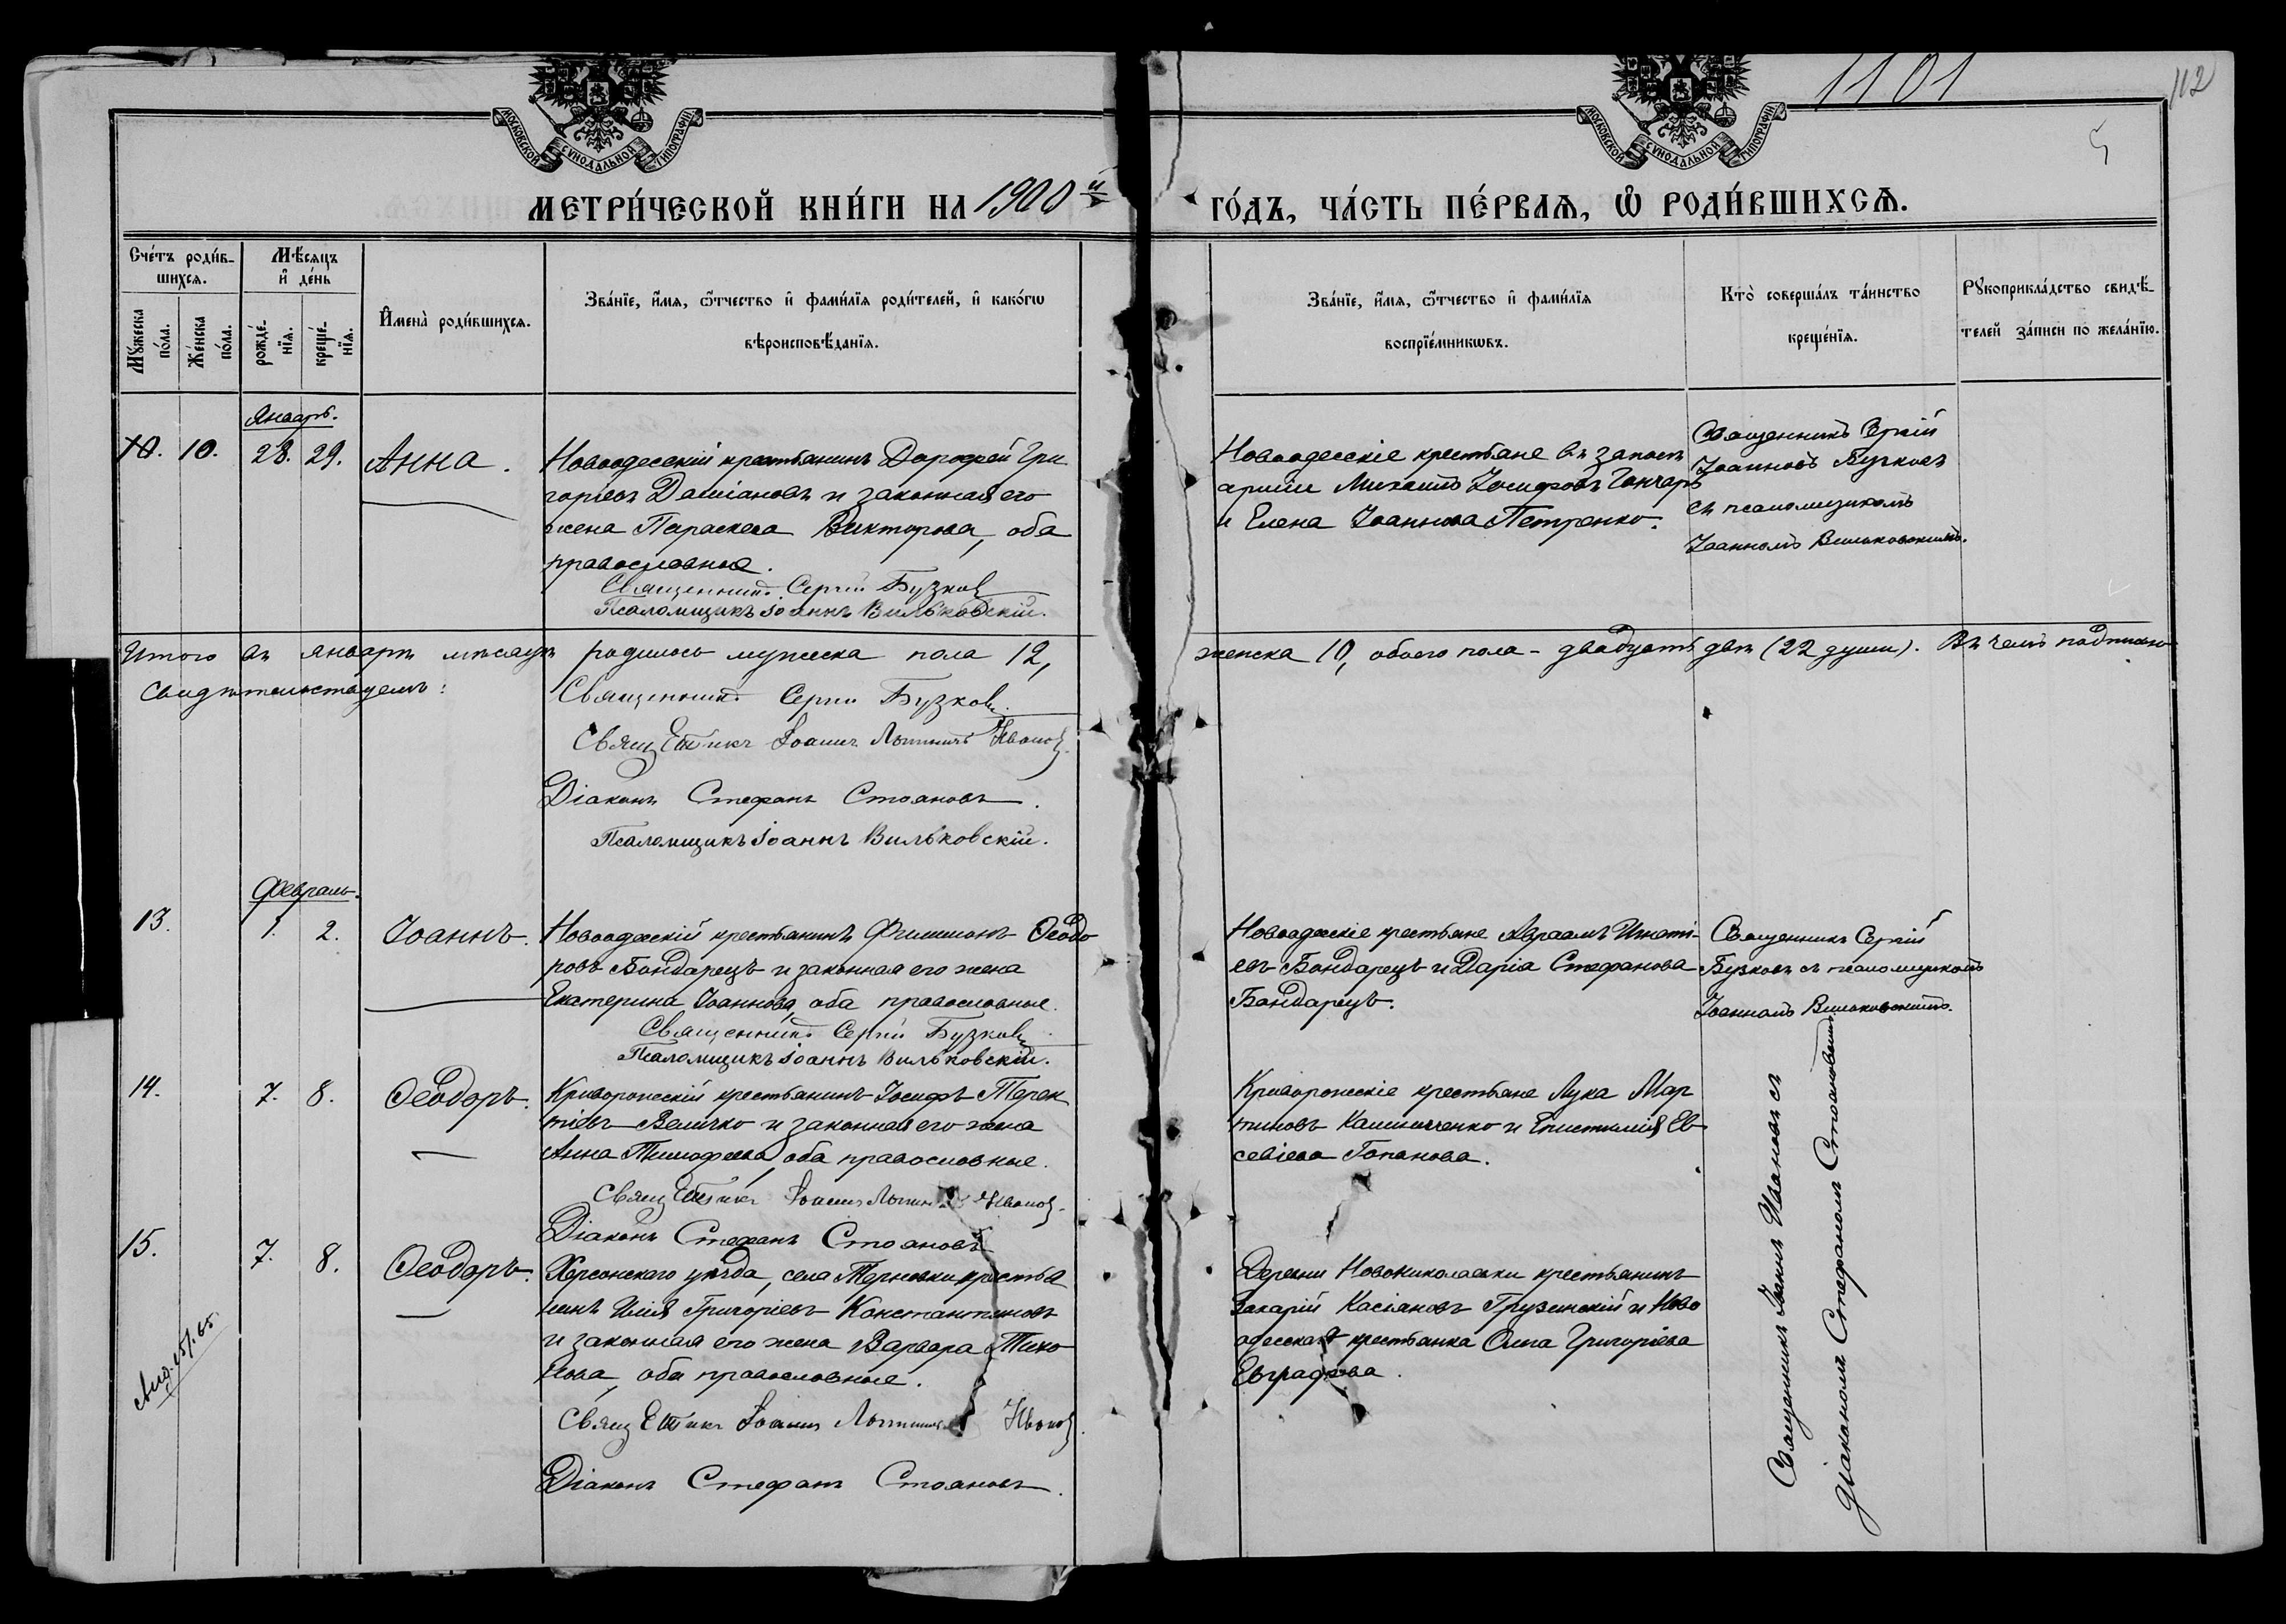 МОСКОВСКОЙ СУНОДАЛЬНОЙ ТИПОГРАФІИ
МОСКОВСКОЙ СУНОДАЛЬНОЙ ТИПОГРАФІИ
1101
112
5
МЕТРИ́ЧЕСКОЙ КНИ́ГИ НА 1900й
ГО́ДЪ, ЧА́СТЬ ПЕ́РВАѦ, Ѡ҆ РОДИ́ВШИХСѦ.
Сче́тъ роди́в-
шихсѧ.
Мꙋ́жеска
по́ла.
Же́нска
по́ла.
Мѣ́сяцъ
и҆ де́нь
рожде́-
нїѧ.
креще́-
нїѧ.
И҆мена̀ роди́вшихсѧ.
Зва́нїе, и҆́мѧ, ѻ҆́тчество и҆ фами́лїѧ роди́телей, и҆ како́гѡ
вѣроисповѣ́данїѧ.
Зва́нїе, и҆́мѧ, ѻ҆́тчество и҆ фами́лїѧ
воспрїе́мникѡвъ.
Кто̀ соверша́лъ та́инство
креще́нїѧ.
Рꙋкоприкла́дство свидѣ́-
телей за́писи по жела́нїю.
Январь.
10. 10. 28. 29. Анна.
Новоодесскій крестьянинъ Дорофей Гри
горіевъ Даміановъ и законная его
жена Параскева Викторова, оба
православные.
Священникъ Сергій Бузковъ
Псаломщикъ Іоаннъ Вильковскій.
Новоодесскіе крестьяне въ запасѣ
арміи Михаилъ Іосифовъ Гончаръ
и Елена Іоаннова Петренко.
Священникъ Сергій
Іоанновъ Бузковъ
съ псаломщикомъ
Іоанномъ Вильковскимъ.
Итого въ январѣ мѣсяцѣ родилось мужеска пола 12,
женска 10, обоего пола - двадцать двѣ (22 души). Въ чемъ подписью
свидѣтельствуемъ:
Священникъ Сергій Бузковъ.
Священникъ Іоаннъ Ивановъ.
Діаконъ Стефанъ Стояновъ.
Псаломщикъ Іоаннъ Вильковскій.
Февраль.
13. 1. 2. Іоаннъ.
Новоодесскій крестьянинъ Филимонъ Ѳеодо
ровъ Бондарецъ и законная его жена
Екатерина Іоаннова, оба православные.
Священникъ Сергій Бузковъ.
Псаломщикъ Іоаннъ Вильковскій.
Новоодесскіе крестьяне Авраамъ Игнаті-
евъ Бондарецъ и Дарія Стефанова
Бондарецъ.
Священникъ Сергій
Бузковъ съ псаломщикомъ
Іоанномъ Вильковскимъ.
14. 7. 8. Ѳеодоръ.
Криворожскій крестьянинъ Іосифъ Терен
тіевъ Величко и законная его жена
Анна Тимофеева, оба православные.
Священникъ Іоаннъ Ивановъ.
Діаконъ Стефанъ Стояновъ
Криворожскіе крестьяне Лука Мар
тиновъ и Епистимія Ев
севіева Гопанова.
15. 7. 8. Ѳеодоръ.
Херсонскаго уѣзда, села Терновки крестья
нинъ Илія Григоріевъ Константиновъ
и законная его жена Варвара
оба православные.
Священникъ Іоаннъ Ивановъ.
Діаконъ Стефанъ Стояновъ.
Деревни Новониколаевки крестьянинъ
Захарій Касіановъ Грузинскій и Ново
одесская крестьянка Ольга Григоріева
Евграфова.
Священникъ Іоаннъ Ивановъ съ
діакономъ Стефаномъ Стояновымъ.